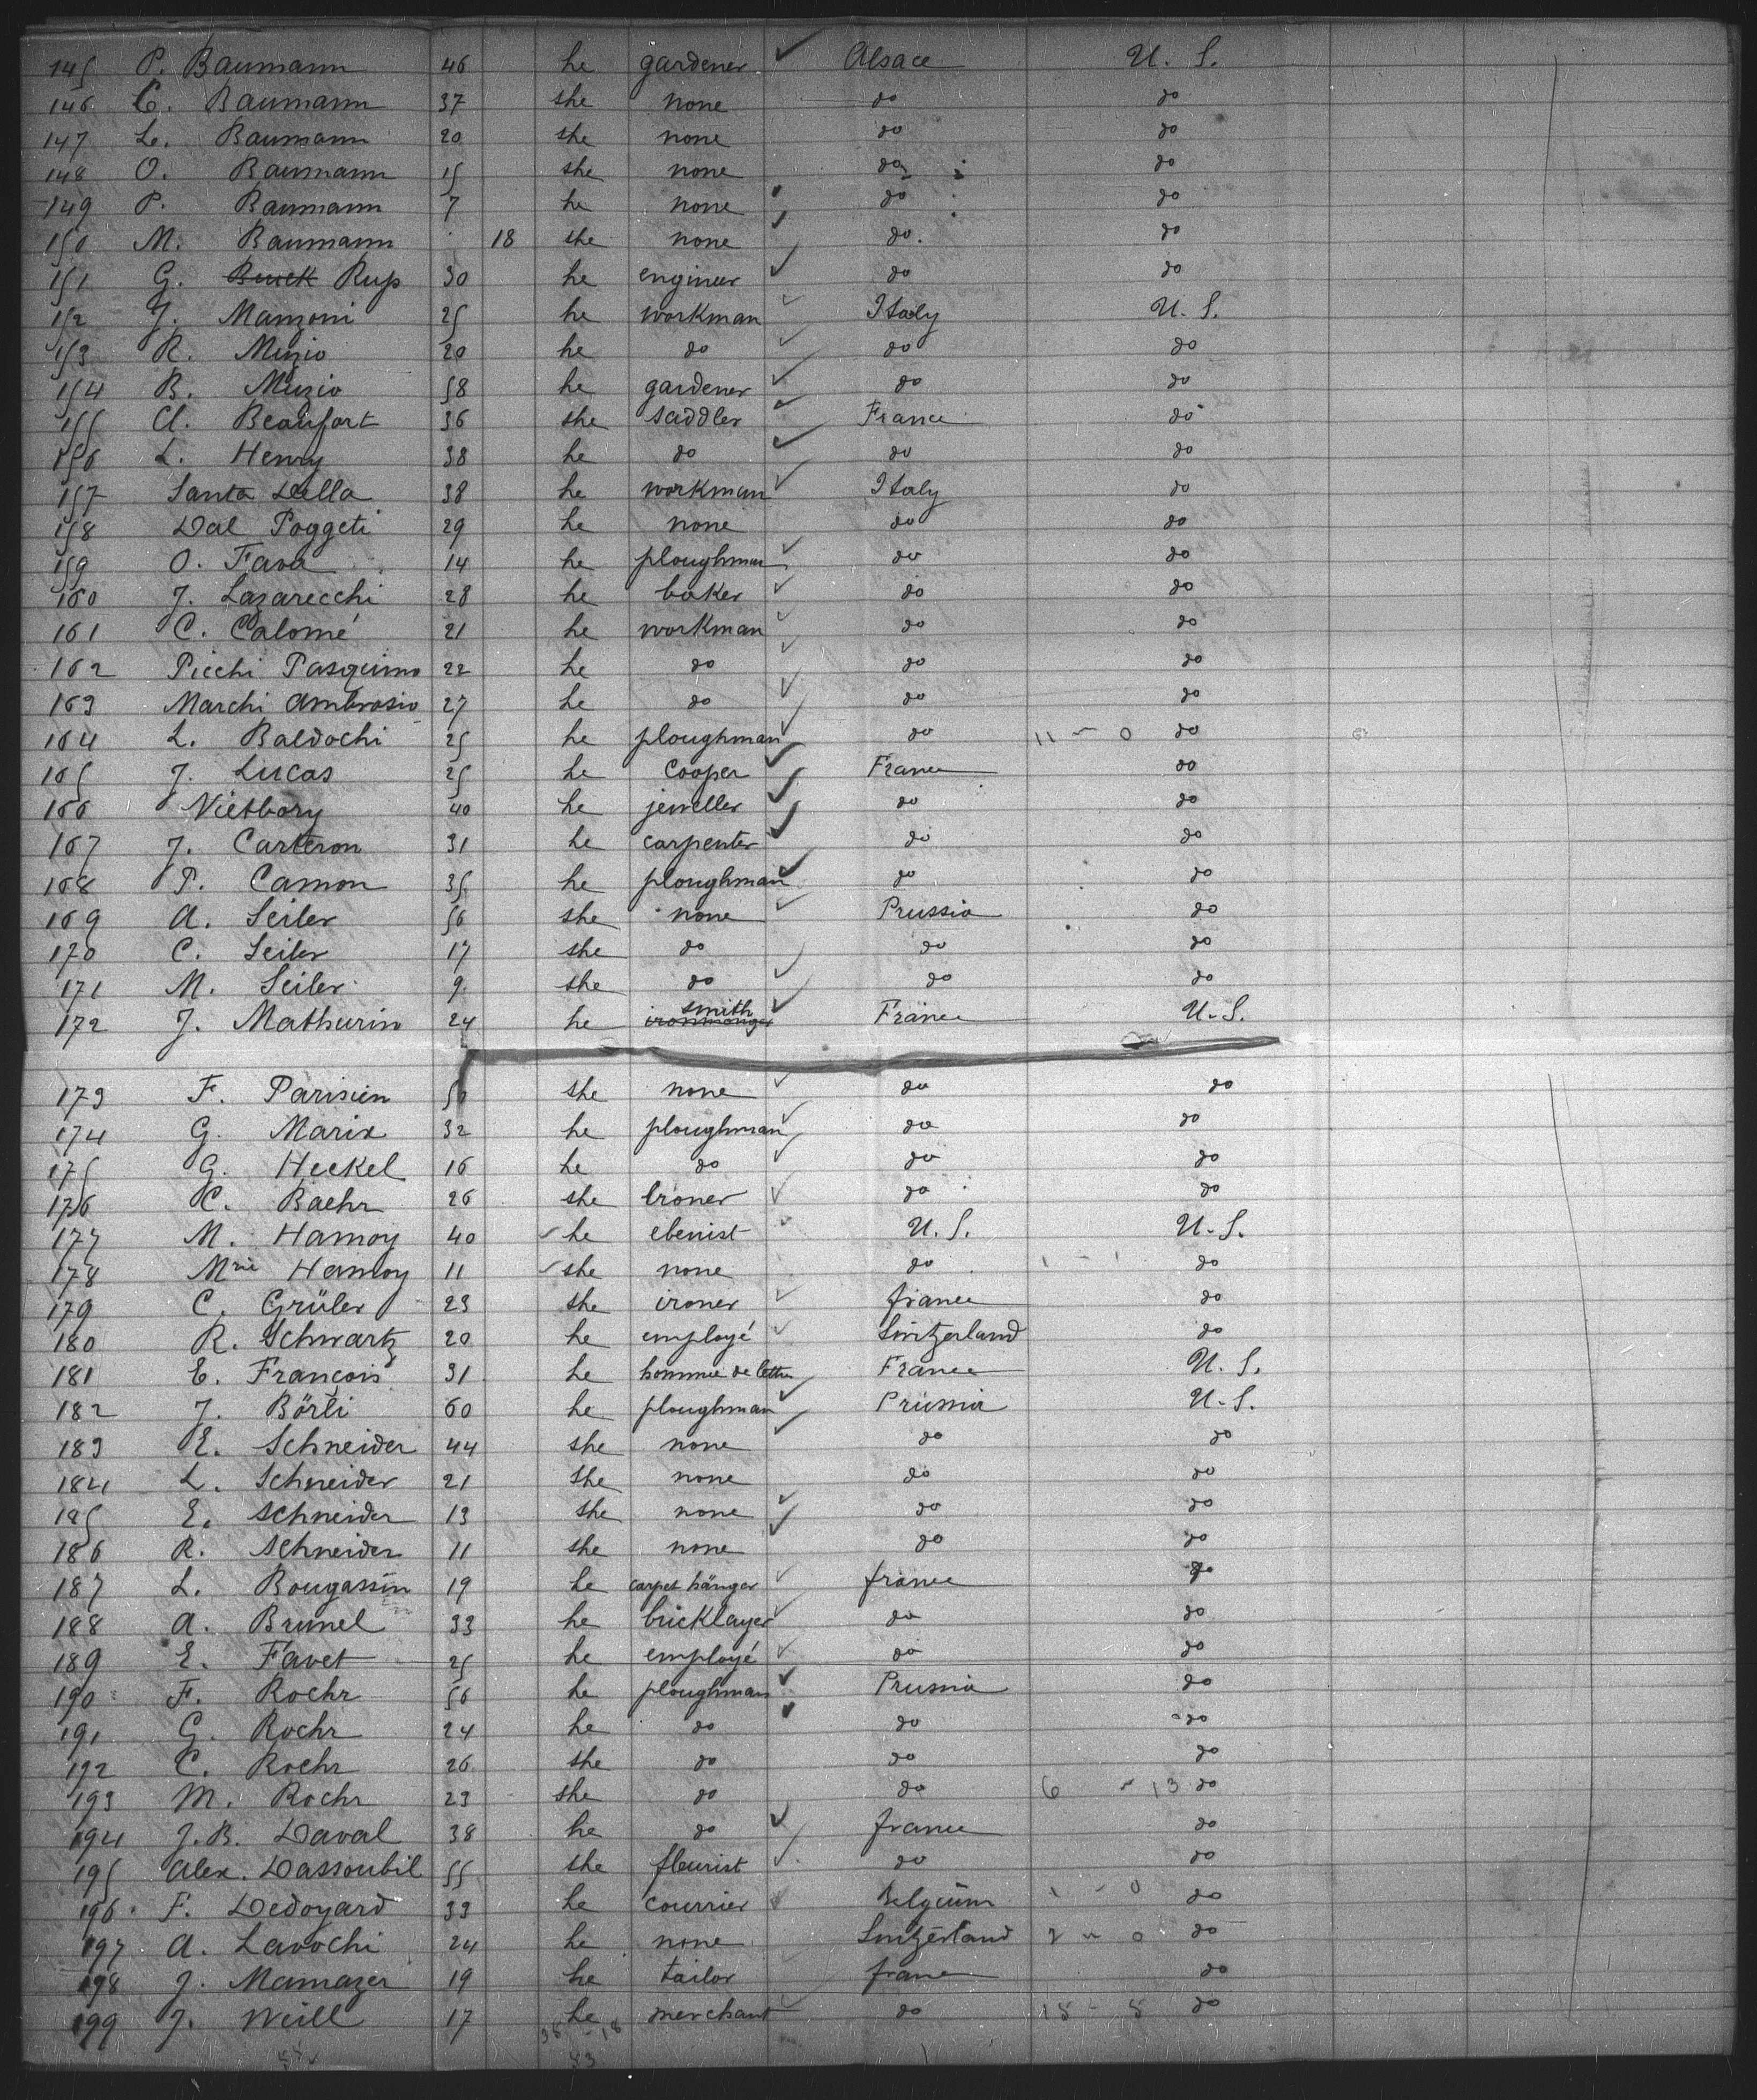 145 P. Baumann 46 he gardener Alsace U. S.
146 C. Baumann 37 she none do do
147 Le. Baumann 20 she none do do
148 O. Baumann 15 she none do do
149 P. Baumann 7 he none do do
150 M. Baumann 18 she none do. do
151 G. Rup 30 he engineer do do
152 J. Manzoni 25 he workman Italy U. S.
153 R. Muzio 20 he do do do
154 B. Muzio 58 he gardener do do
155 Cl. Beaufort 36 she saddler France do
156 L. Henry 38 he do do do
157 Santa Della 38 he workman Italy do
158 Dal Poggeti 29 he none do do
159 O. Fava 14 he ploughman do do
160 J. Lazarecchi 28 he baker do do
161 C. Calomé 21 he workman do do
162 Picchi Pasquino 22 he do do do
163 Marchi Ambrosio 27 he do do do
164 L. Baldochi 25 he ploughman do 11 - 0 do
165 J. Lucas 25 he cooper France do
166 Vietbory 40 he jeweller do do
167 J. Carteron 31 he carpenter do do
168 P. Camon 35 he ploughman do do
169 A. Seiler 56 she none Prussia do
170 C. Seiler 17 she do do do
171 M. Seiler 9 she do do do
172 J. Mathurin 24 he ironmonger smith France U. S.
173 F. Parisien she none do do
174 G. Marix 32 he ploughman do do
175 G. Heckel 16 he do do do
176 C. Baehr 26 she ironer do do
177 M. Hamoy 40 he ebenist U. S. U. S.
178 Mrie Hamoy 11 she none do 1 - 1 do
179 C. Grüler 23 she ironer france do
180 R. Schwartz 20 he employé Switzerland do
181 E. François 31 he homme de lettre France U. S.
182 J. Börli 60 he ploughman Prussia U. S.
183 E. Schneider 44 she none do do
184 L. Schneider 21 she none do do
185 E. Schneider 13 she none do do
186 R. Schneider 11 she none do do
187 L. Bougassin 19 he carpet hänger france do
188 A. Brunel 33 he bricklayer do do
189 E. Favet 25 he employé do do
190 F. Rochr 56 he ploughman Prussia do
191 G. Rochr 24 he do do do
192 C. Rochr 26 she do do do
193 M. Rochr 23 she do do 6 - 13 do
194 J. B. Daval 38 he do france do
195 Alex. Dassoubil 55 she fleurist do do
196 F. Dedoyard 33 he courrier Belgium 1 - 0 do
197 A. Lavochi 24 he none Switzerland 2 - 0 do
198 J. Mamazer 19 he tailor france do
199 J. Weill 17 he merchant do 15 - 5 do
36 - 18
53